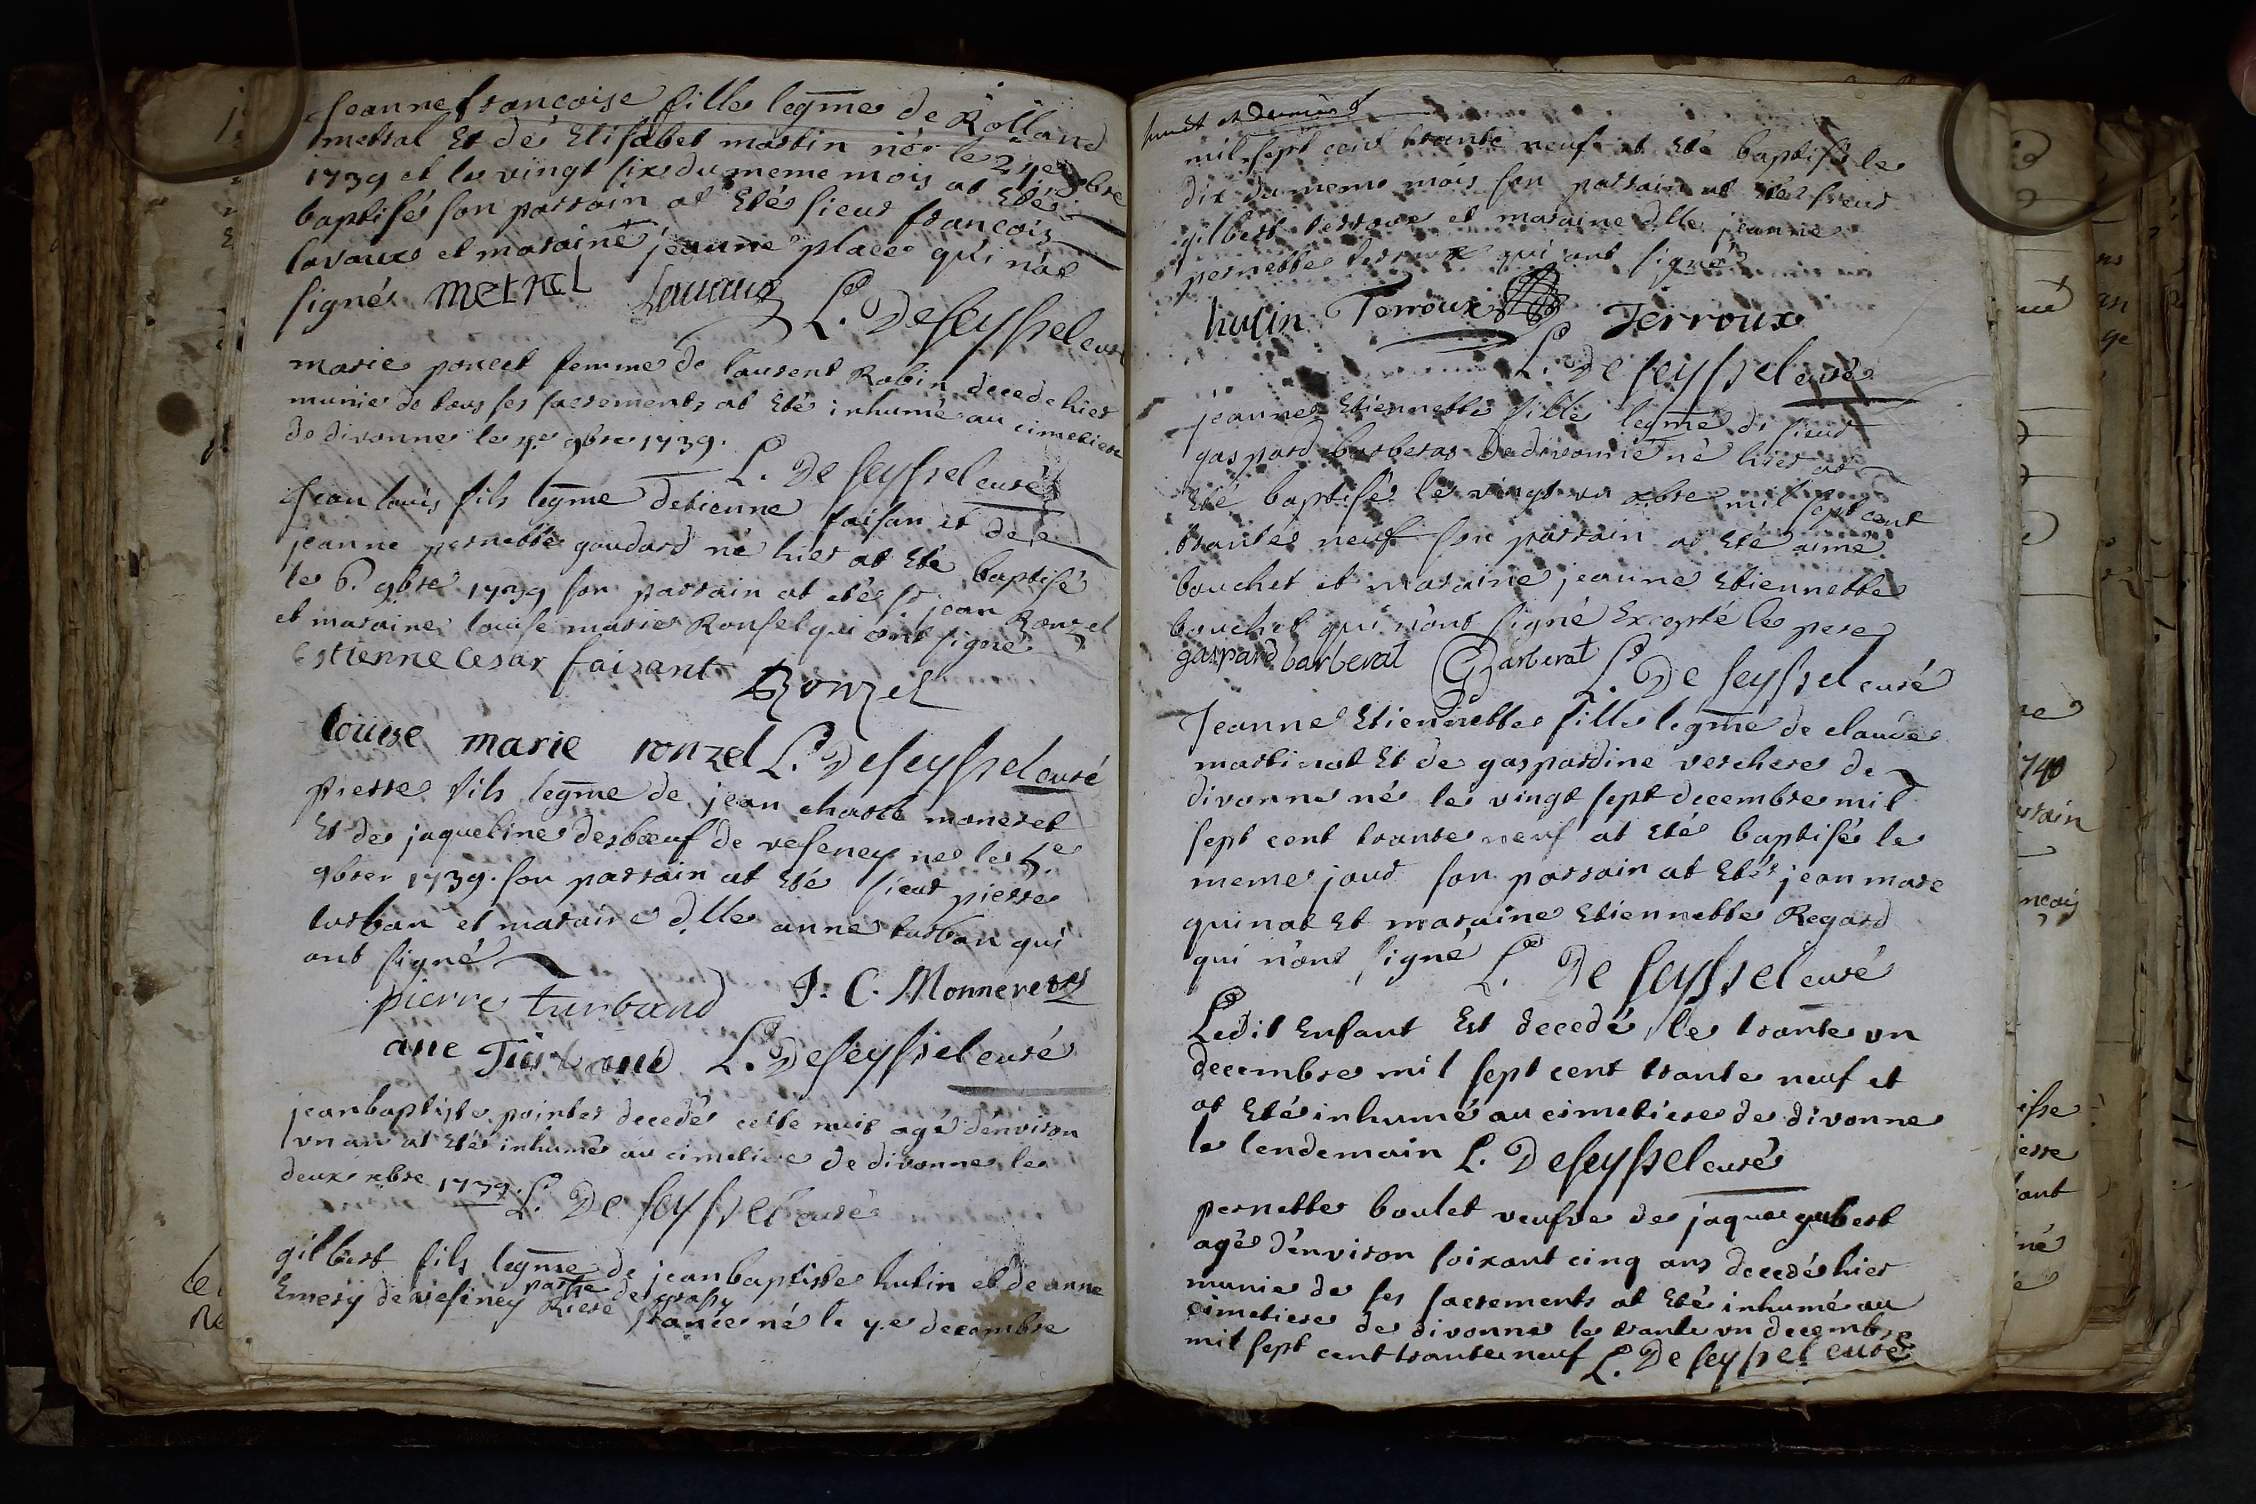 Jeanne françoise fille legme de Rolland
metral Et de Elisabet martin né le 24e 8bre
1739 et le vingt six du meme mois at Eté
baptisé son parrain at Eté sieur françois
lavoux et maraine jeanne place qui n'at
signé metral Lavaux L. De seyssel curé
marie poncet femme de laurent Robin decede hier
munie de tous ses sacrements at Eté inhumé au cimetiere
de divonne le 4e 9bre 1739.
L. De seyssel curé
Jean louis fils legme detienne faisan et de
jeanne pernette goudard né hier at Eté baptisé
le 6. 9bre 1739 son parrain at eté sr jean Ronzel
et maraine louise marie Ronsel qui ont signé
Estienne Cesar faisant Ronzel
louise marie ronzel L. De seyssel curé
pierre fils legme de jean charle moneret
Et de jaqueline desbœuf de veseney né le 5e
9bre 1739. son parrain at Eté sieur pierre
turban et maraine dlle anne turban qui
ont signé
pierre turband J. C. Monneret
ane Turband L. De seyssel curé
jean baptiste pointer decedé cette nuit agé d'environ
vn an at Eté inhumé au cimetiere de divonne le
deux xbre 1739. L. De seyssel curé
gilbert fils legme de jean baptiste hutin et de anne
Emery de vesiney de crassy
partie Riere france né le 9e decembre
mil sept cent trante neuf at Eté baptisé le
dix du meme mois son parrain at Eté sieur
gilbert terroux et maraine dlle jeanne
pernette terroux qui ont signé
hutin Terroux Terroux
L. De seyssel curé
jeanne Etiennette fille legme de sieur
gaspard barberat de divonne né hier at
Eté baptisé le vingt vn xbre mil sept cent
trante neuf son parrain at Eté aimé
bouchet et maraine jeanne Etiennette
bouchet qui n'ont signé Excepté le pere
gaspard barberat Barberat L. De seyssel curé
Jeanne Etiennette fille legme de claude
martinat Et de gaspardine verchere de
divonne né le vingt sept decembre mil
sept cent trante neuf at Eté baptisé le
meme jour son parrain at Eté jean marc
quinat Et maraine Etiennette Regard
qui n'ont signé L. De seyssel curé
Ledit Enfant Est decedé le trante vn
decembre mil sept cent trante neuf et
at Eté inhumé au cimetiere de divonne
le lendemain L. De seyssel curé
pernette boulet veufve de jaque gubert
agé d'environ soixant cinq ans decedé hier
munie de ses sacrements at Eté inhumé au
cimetiere de divonne le trante vn decembre
mil sept cent trante neuf L. De seyssel curé